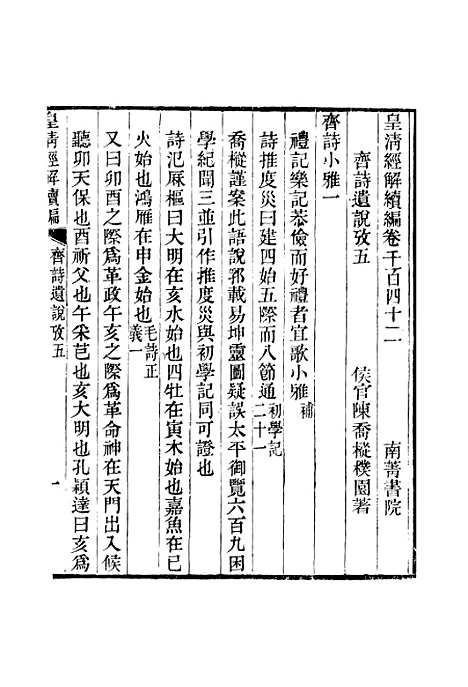 皇清經解續編卷千百四十二　南菁書院
齊詩遺說攷五　侯官陳喬樅樸園著
齊詩小雅一
禮記樂記恭儉而好禮者宜歌小雅補
詩推度災曰建四始五際而八節通初學記二十一
喬樅謹案此語說郛載易坤靈圖疑誤太平御覽六百九困
學紀聞三並引作推度災與初學記同可證也
詩氾厤樞曰大明在亥水始也四牡在寅木始也嘉魚在巳
火始也鴻雁在申金始也毛詩正義一
又曰卯酉之際爲革政午亥之際爲革命神在天門出入候
聽卯天保也酉祈父也午采芑也亥大明也孔穎達曰亥爲
皇清經解續編　齊詩遺說攷五　一